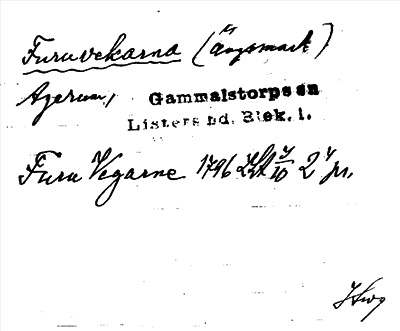 Furuvekarna (Ängsmark)
Agerum, Gammalstorps sn
Listers hd. Blek. l.
Furu Vegarne 1796 7/10 2 pr.